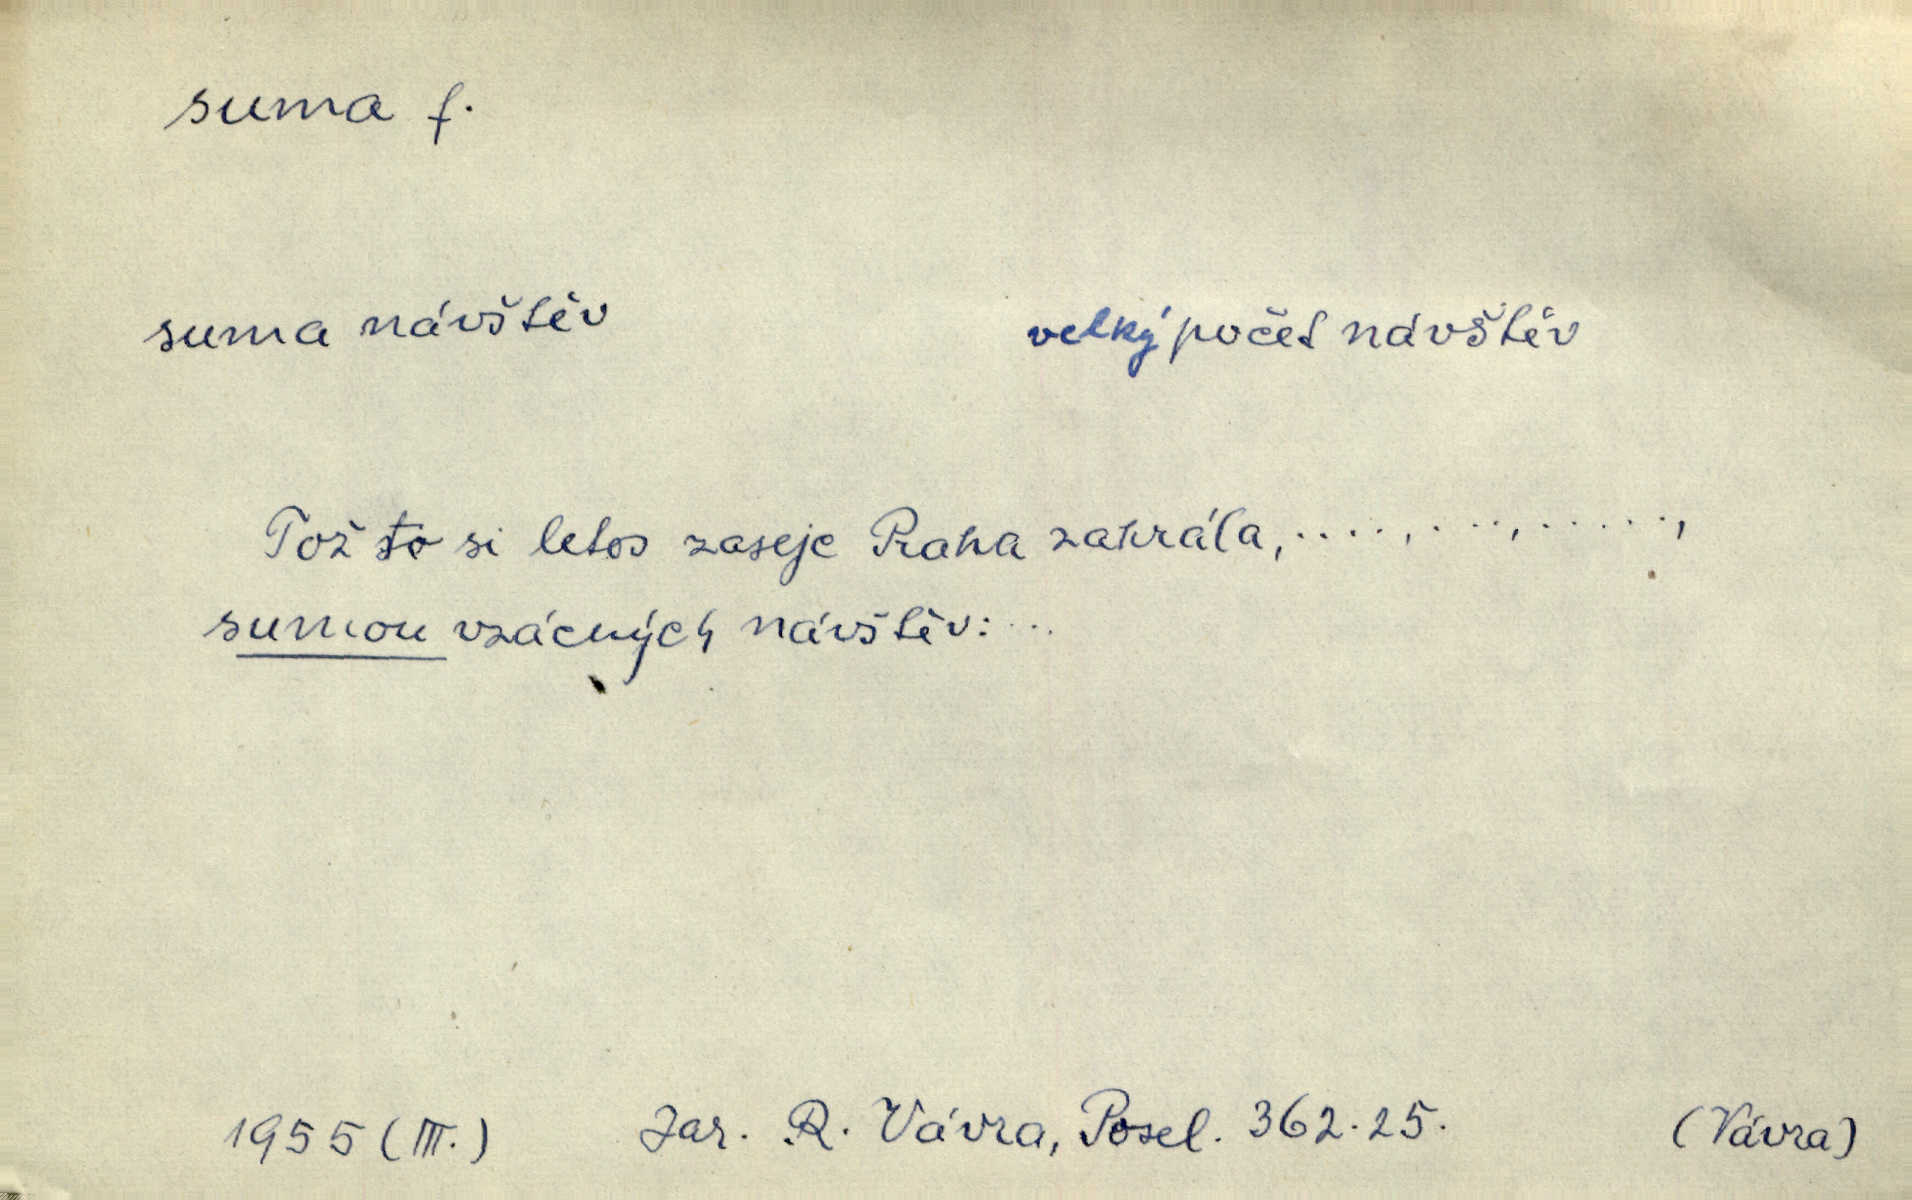 suma f.
suma návštěv velký počet návštěv
Tož to si letos zaseje Praha zahrála, ...., ..., ......,
sumou vzácných návštěv: ...
1955 (III.) Jar. R. Vávra, Posel. 362.25. (Vávra)